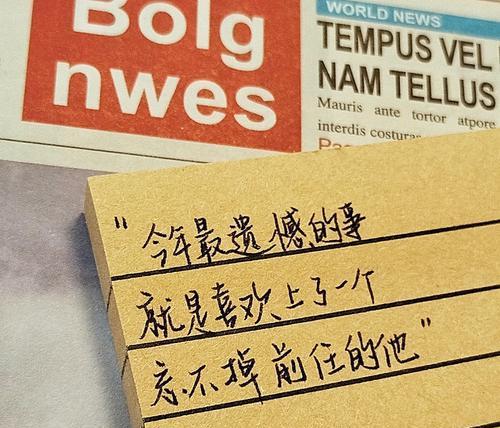 Bolg
nwes
WORLD NEWS
TEMPUS VEL
NAM TELLUS
Mauris ante tortor atpore
interdis costuras
"今年最遗憾的事
就是喜欢上了一个
忘不掉前任的他"